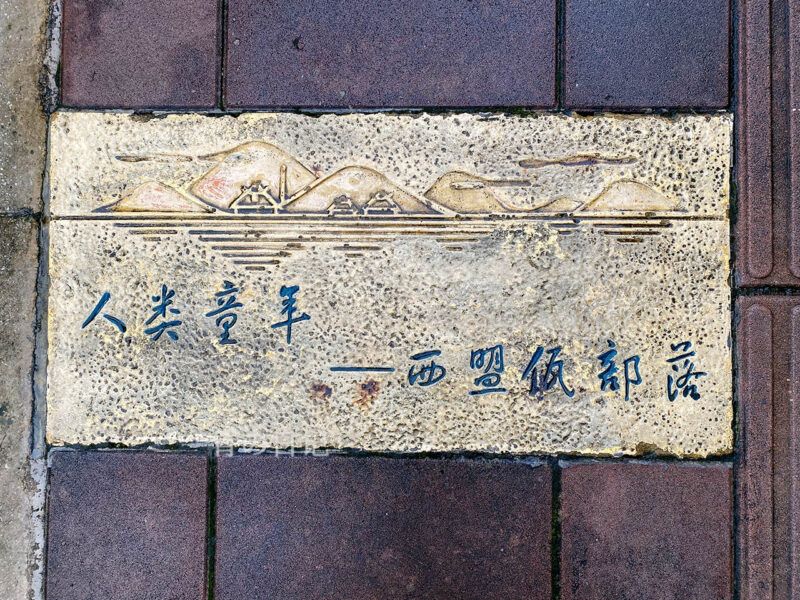 人类童年
——西盟佤部落